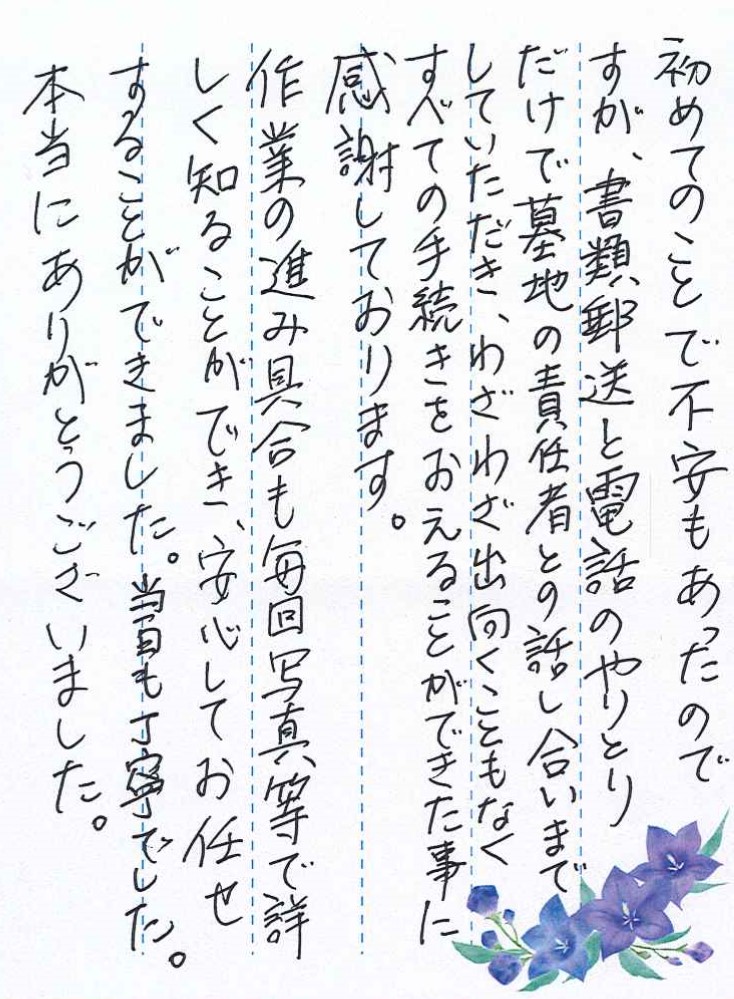 初めてのことで不安もあったので
すが、書類郵送と電話のやりとり
だけで墓地の責任者との話し合いまで
していただき、わざわざ出向くこともなく
すべての手続きをおえることができた事に
感謝しております。
作業の進み具合も毎回写真等で詳
しく知ることができ、安心してお任せ
することができました。当日も丁寧でした。
本当にありがとうございました。